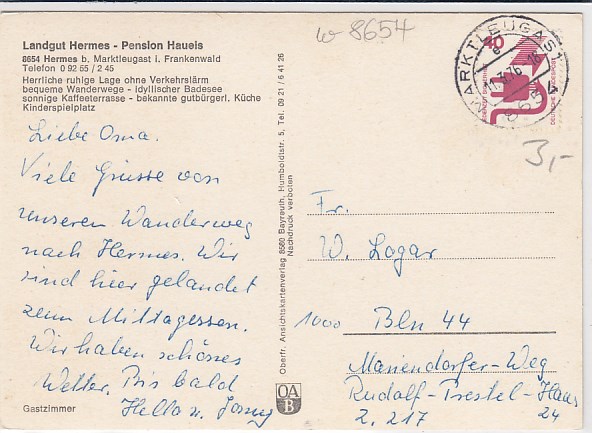 Landgut Hermes - Pension Haueis
8654 Hermes b. Marktleugast i. Frankenwald
Telefon 0 92 55 / 2 45
Herrliche ruhige Lage ohne Verkehrslärm
bequeme Wanderwege - idyllischer Badesee
sonnige Kaffeeterrasse - bekannte gutbürgerl. Küche
Kinderspielplatz
Liebe Oma.
Viele Grüsse von
unseren Wanderweg
nach Hermes. Wir
sind hier gelandet
zum Mittagessen.
Wir haben schönes
Wetter. Bis bald
Hella u.
Gastzimmer
Oberfr. Ansichtskartenverlag 8580 Bayreuth, Humboldtstr. 5, Tel. 09 21 / 6 41 26
Nachdruck verboten
OA
B
w 8654
MARKTLEUGAST
40
DEUTSCHE BUNDESPOST
3,-
Fr.
W. Logar
1000 Bln 44
Mariendorfer-Weg
Rudolf-Prestel-Haus
Z. 217 24